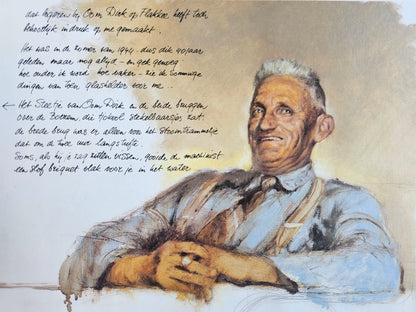 dat logeren bij Oom Dirk op Flakkee heeft toch
behoorlijk indruk op me gemaakt.
Het was in de zomer van 1944. dus dik 40 jaar
geleden maar nog altijd - en gek genoeg
hoe ouder ik word hoe vaker - zie ik sommige
dingen van toen glashelder voor me...
← Het Steetje van Oom Dirk en de beide bruggen
over de Boezem, die tjokvol stekelbaarsjes zat.
de brede brug was er alleen voor het stoomtrammetje
dat om de twee uur langs tufte.
Soms, als hij je zag zitten vissen, gooide de machinist
een stof briquet vlak voor je in het water